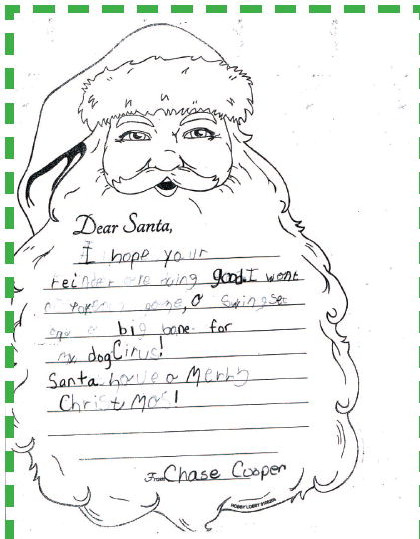 Dear Santa,
I hope your
reinter are doing good. I want
a game, a swing set
and a big bone for
my dog Cirus!
Santa have a Merry
Christmas!
From Chase Cooper
HOBBY LOBBY